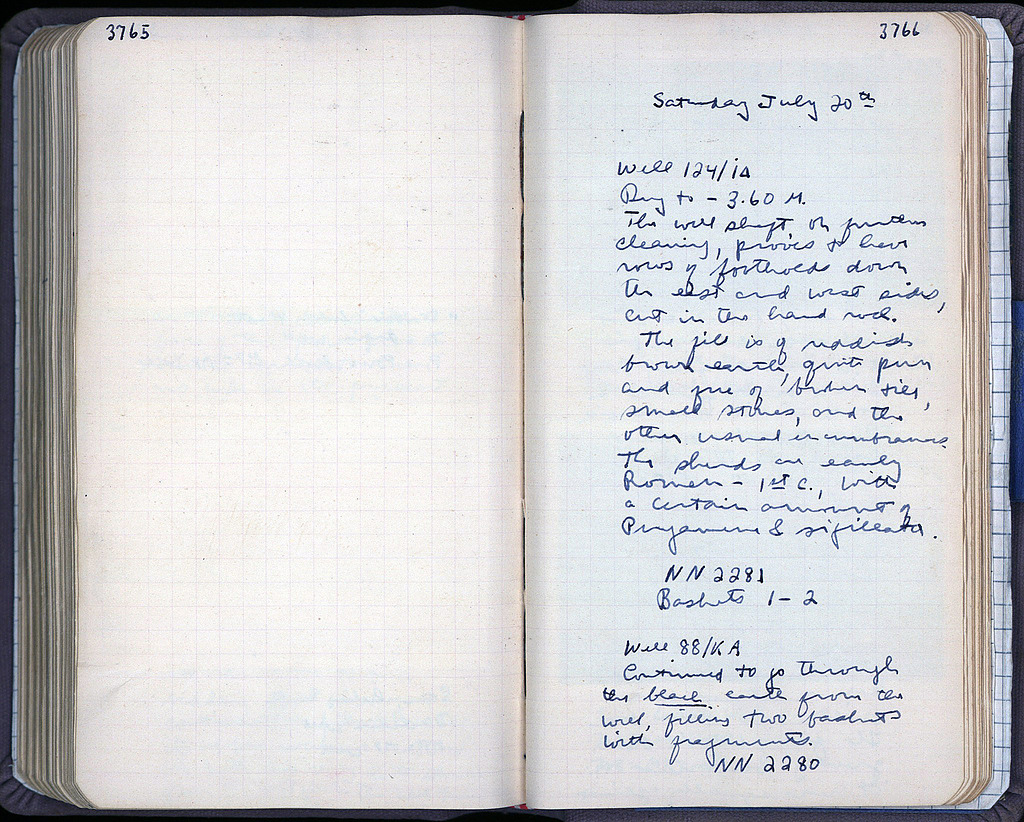 3765
3766
Saturday July 20th
Well 124/ΙΔ
Dug to - 3.60 M.
The well shaft, on further
cleaning, proves to have
rows of footholds down
the east and west sides,
cut in the hard rock.
The fill is of reddish
brown earth, quite pure
and free of broken tiles,
small stones, and the
other usual incumbrances.
The sherds are early
Roman - 1st c., with
a certain amount of
Pergamene & sigillata.
NN 2281
Baskets 1 - 2
Well 88/ΚΑ
Continued to go through
the black earth from the
well, filling two baskets
with fragments.
NN 2280